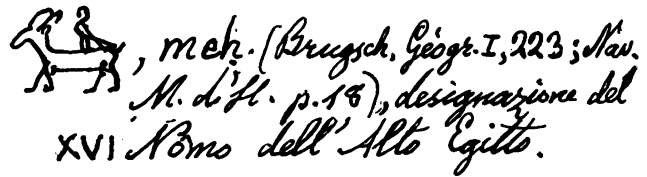 , meh. (Brugsch, Géogr. I, 223; Nav.
M. d'H. p. 18), designazione del
XVI Nomo dell' Alto Egitto.